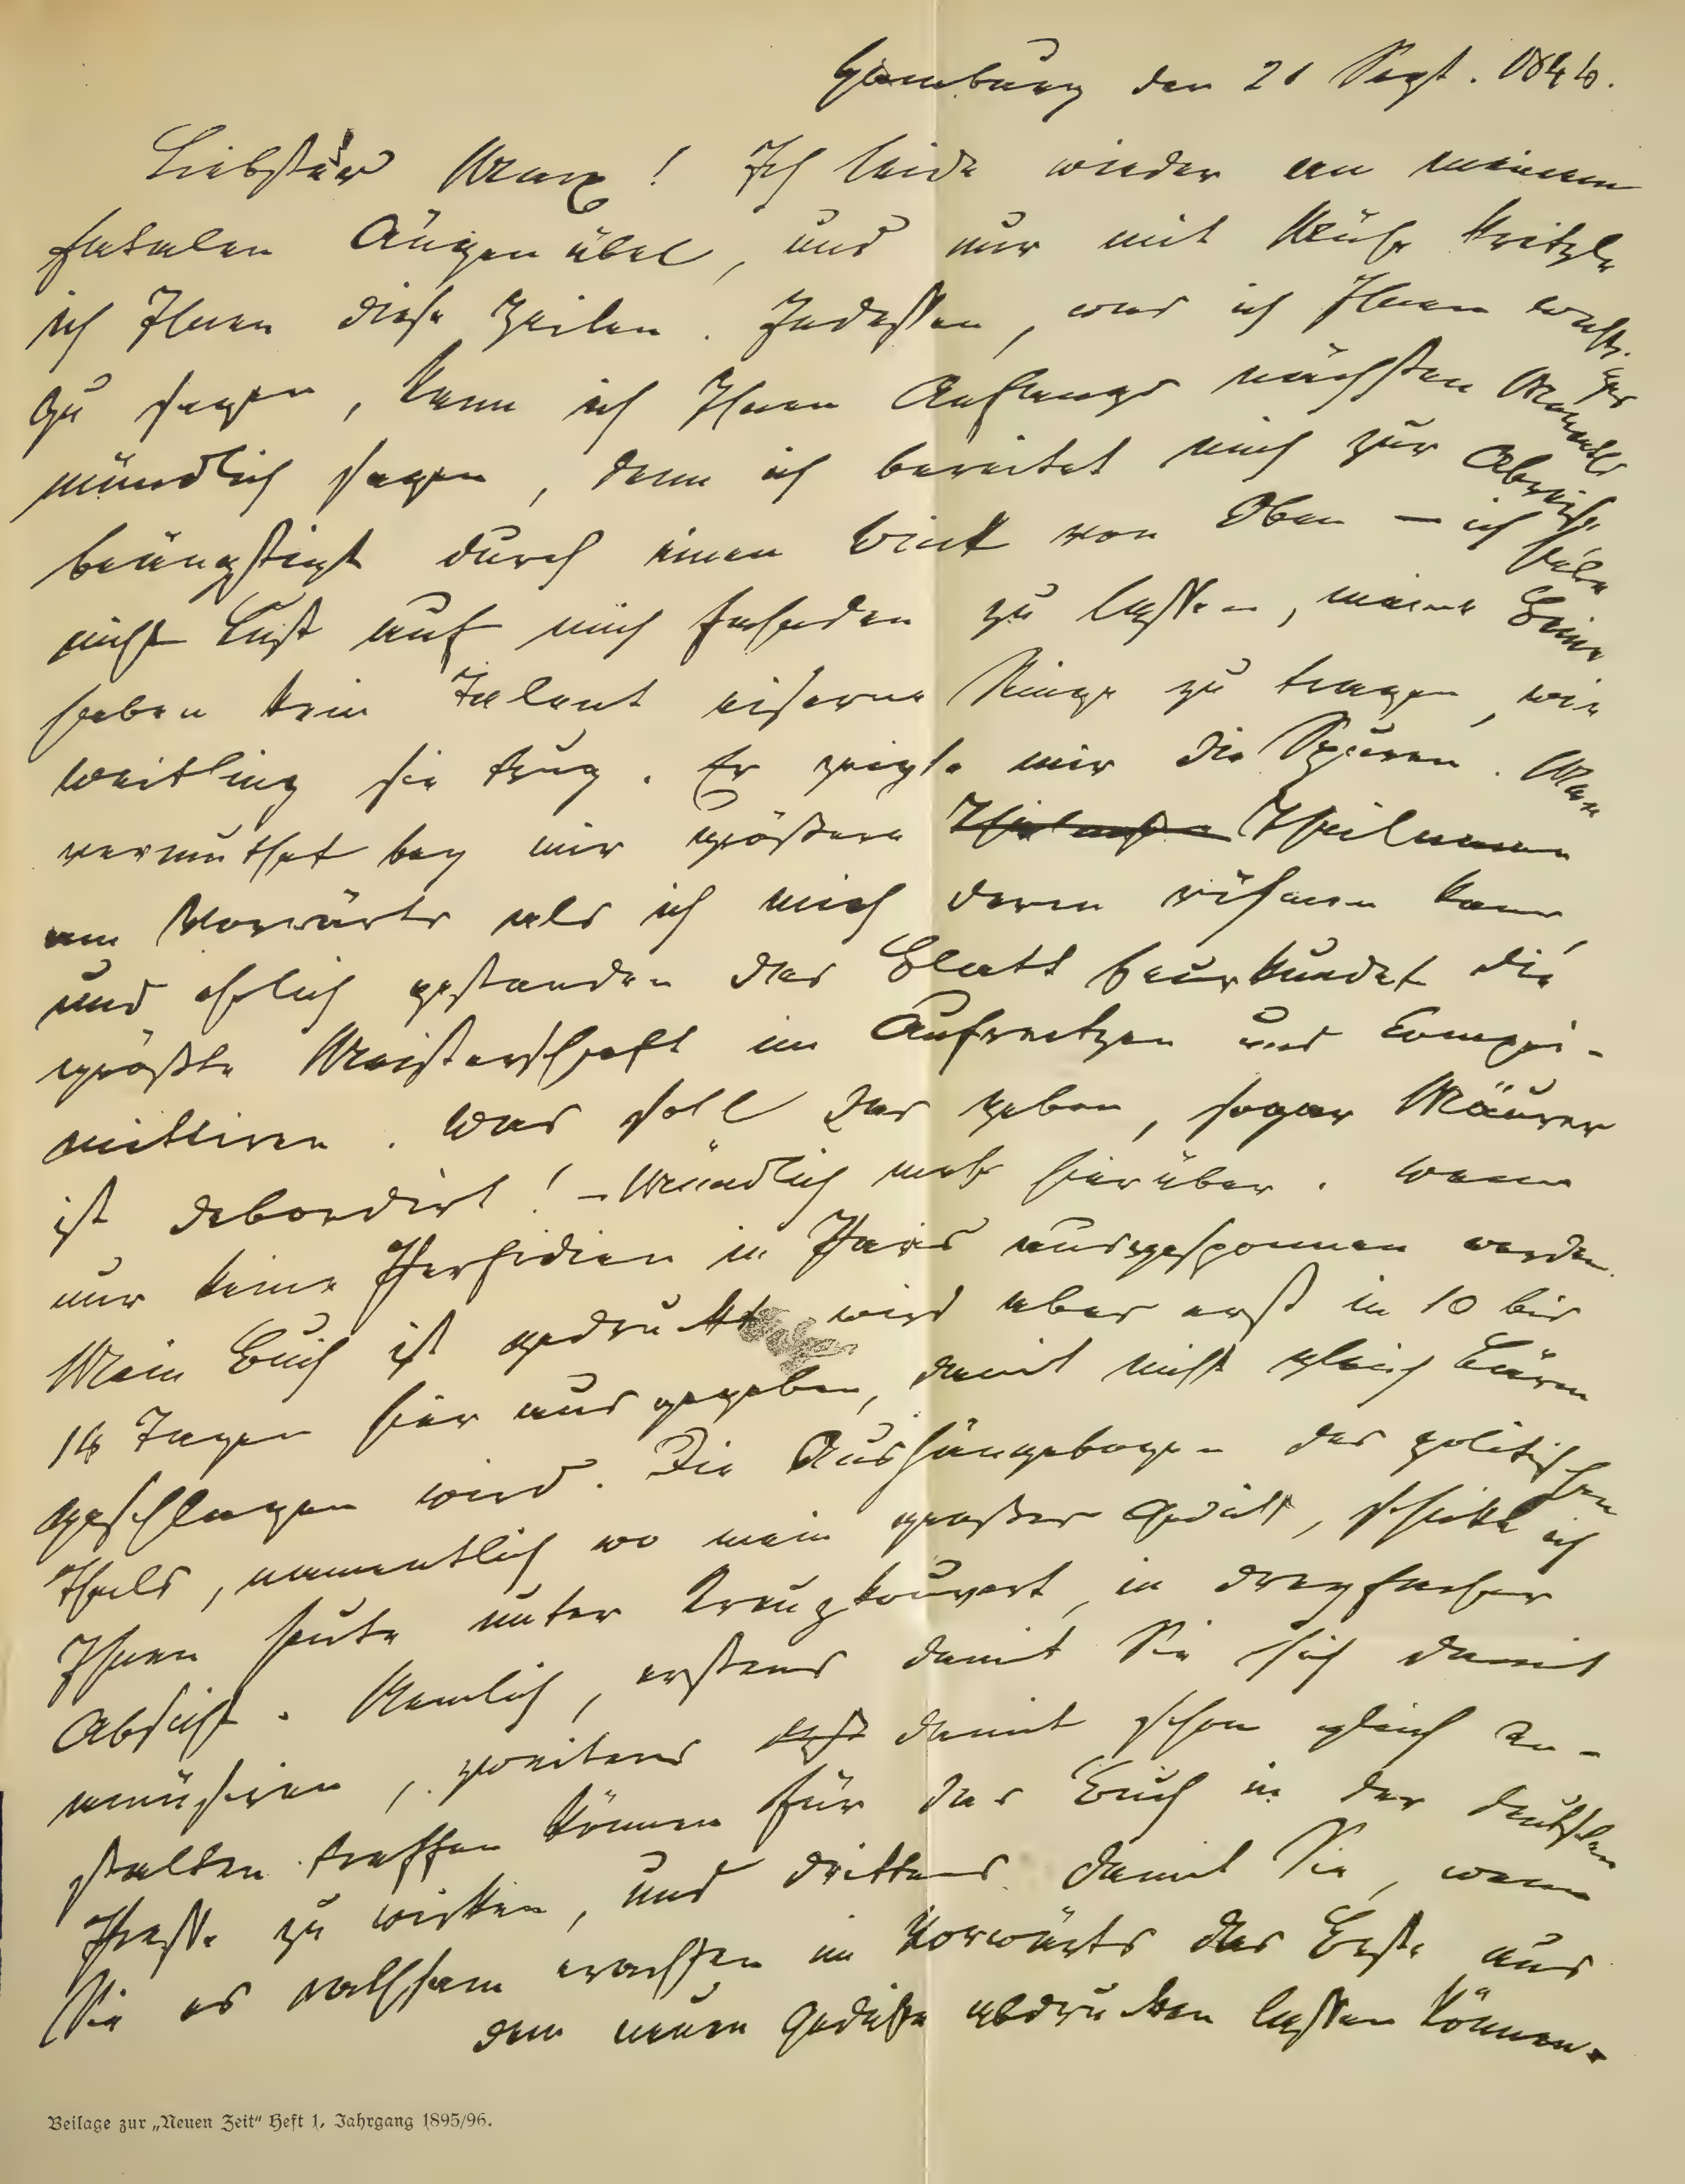 Hamburg den 21 Sept. 1844.
Liebster Marx! Ich leide wieder an meinem
fatalen Augenübel, und nur mit Mühe kritzle
ich Ihnen diese Zeilen. Indessen, was ich Ihnen wichtiges
zu sagen, kann ich Ihnen Anfangs nächsten Monaths
mündlich sagen, denn ich bereitet mich zur Abreise
beängstigt durch einen Wink von Oben – ich habe
nicht Lust auf mich fahnden zu lassen, meine Beine
haben kein Talent eiserne Ringe zu tragen, wie
Weitling sie trug. Er zeigte mir die Spuren. Man
vermuthet bey mir größere Theilnahme
am Vorwärts als ich mich deren rühmen kann,
und ehrlich gestanden das Blatt beurkundet die
größte Meisterschaft im Aufreitzen und Compro-
mittiren. Was soll das geben, sogar Mäurer
ist debordirt! – Mündlich mehr hierüber. Wenn
nur keine Perfidien in Paris ausgesponnen werden.
Mein Buch ist gedruckt wird aber erst in 10 bis
14 Tagen hier ausgegeben, damit nicht gleich Lärm
geschlagen wird. Die Aushängebogen des politischen
Theils, namentlich wo mein großes Gedicht, schicke ich
Ihnen heute unter Kreuzkouvert, in dreyfacher
Absicht. Nemlich, erstens damit Sie sich damit
amüsiren, zweitens damit schon gleich An-
stalten treffen können für das Buch in der deutschen
Presse zu wirken, und drittens damit Sie, wenn
Sie es rathsam erachten im Vorwärts das Beste aus
dem neuen Gedichte abdrucken lassen können.
Beilage zur „Neuen Zeit“ Heft 1, Jahrgang 1895/96.